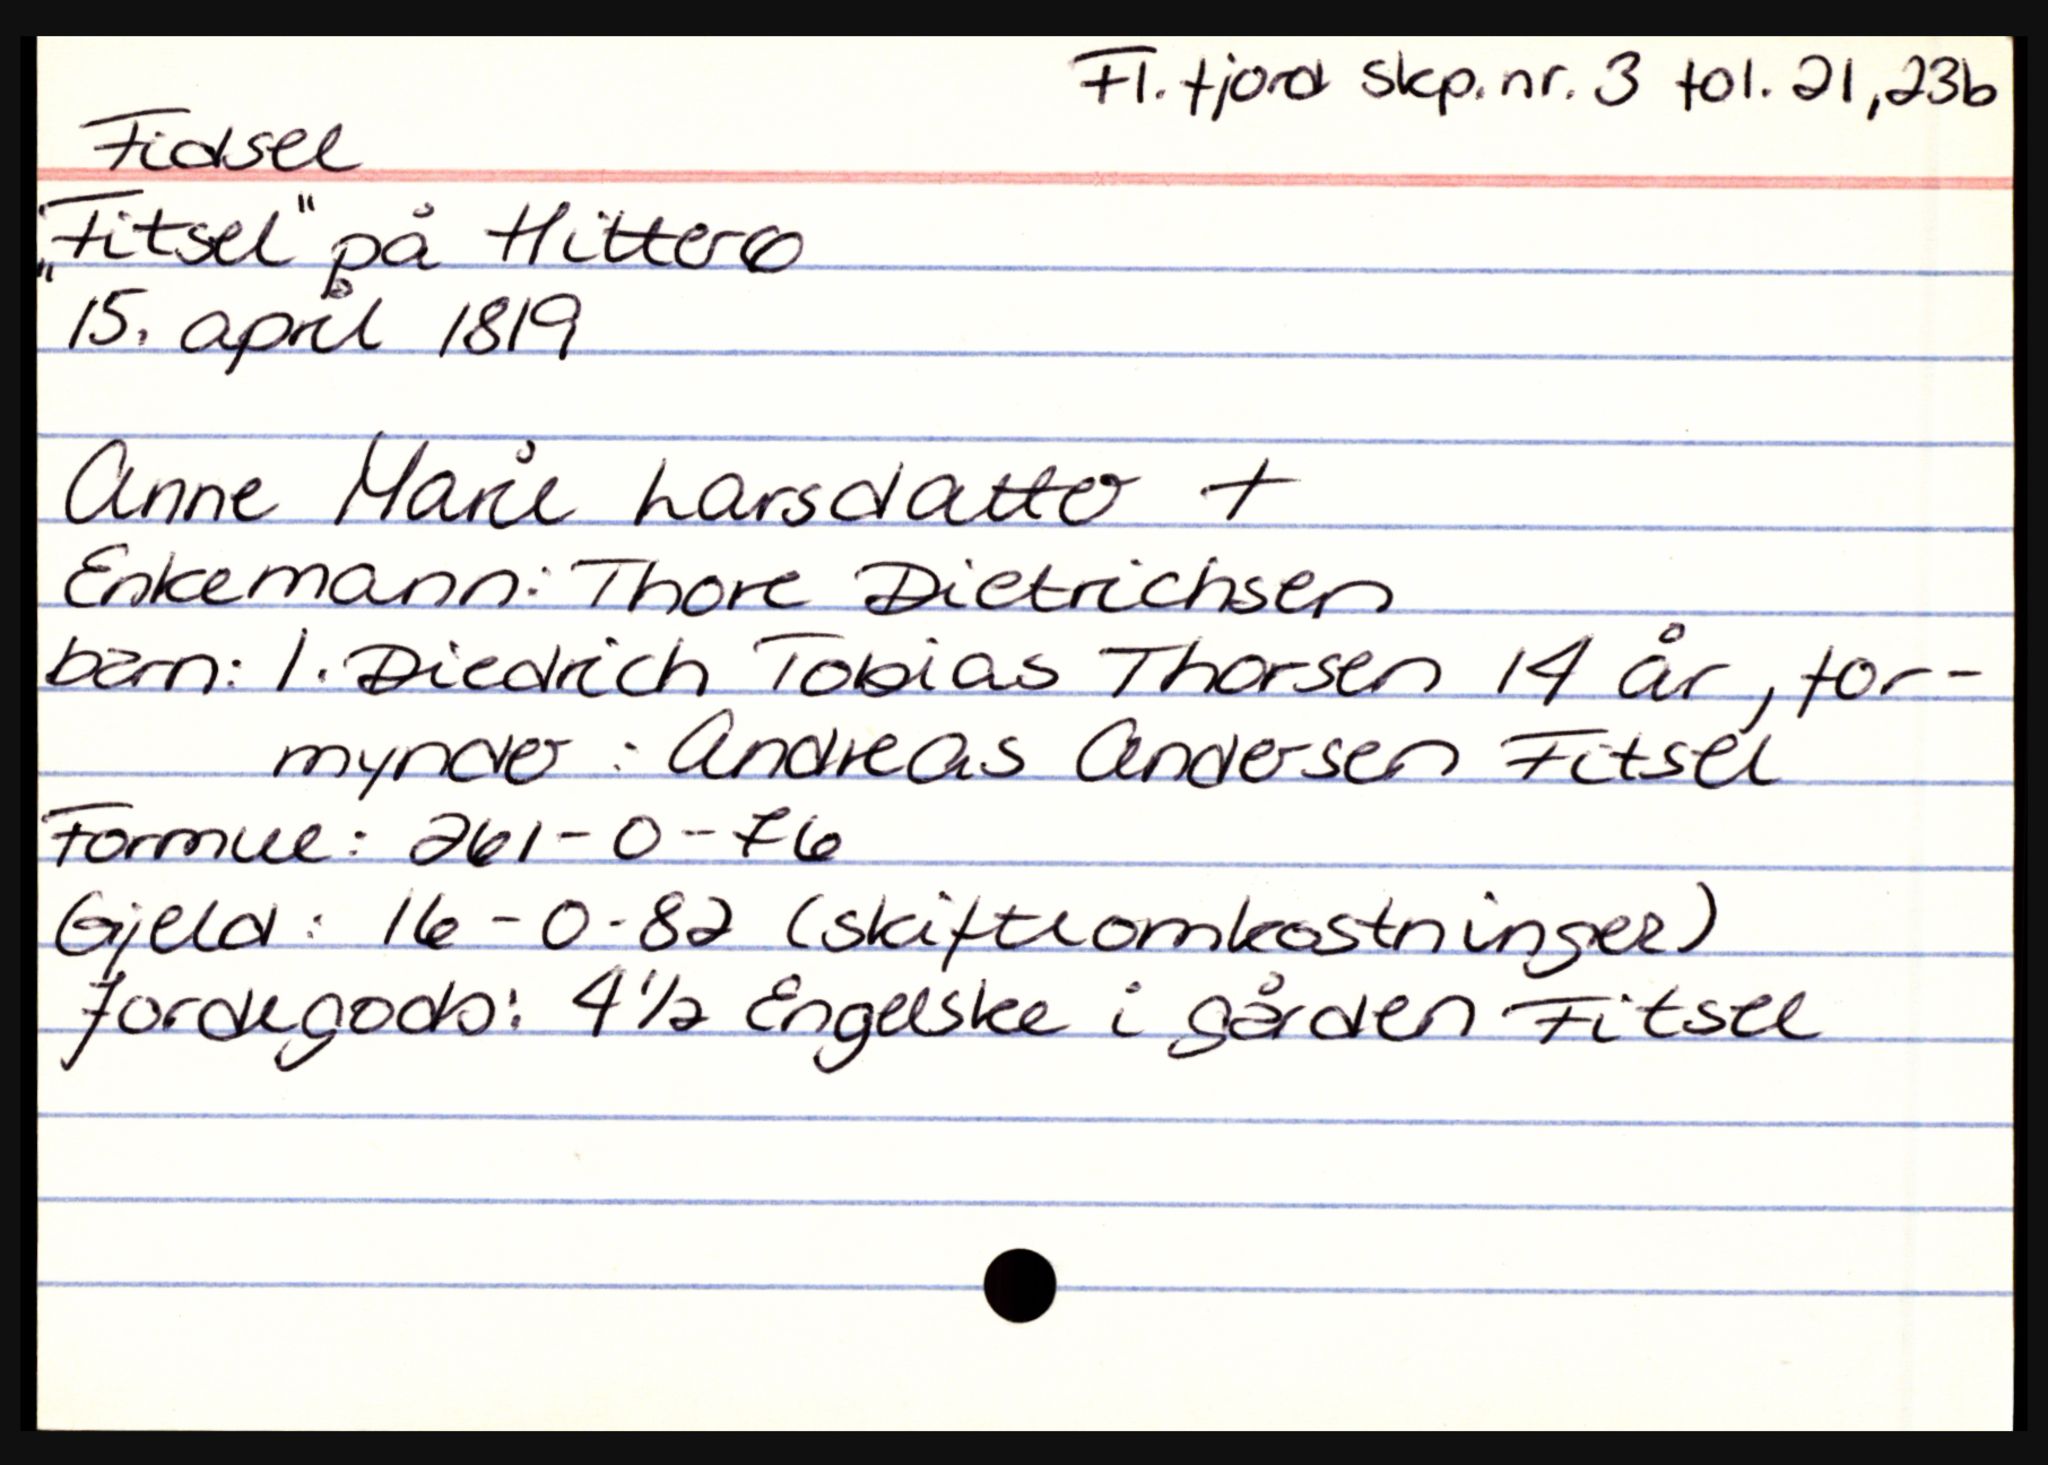 Fl.fjord skp.nr. 3 fol. 21,23b
Fidsel
"Fitsel" på Hitterø
15. april 1819
Anne Marie Larsdatter +
Enkemann: Thore Dietrichsen
barn: 1. Diedrich Tobias Thorsen 14 år, for-
mynder: Andreas Andersen Fitsel
Formue: 261-0-76
Gjeld: 16-0-82 (skifteomkostninger)
Jordegods: 4 1/2 Engelske i gården Fitsel